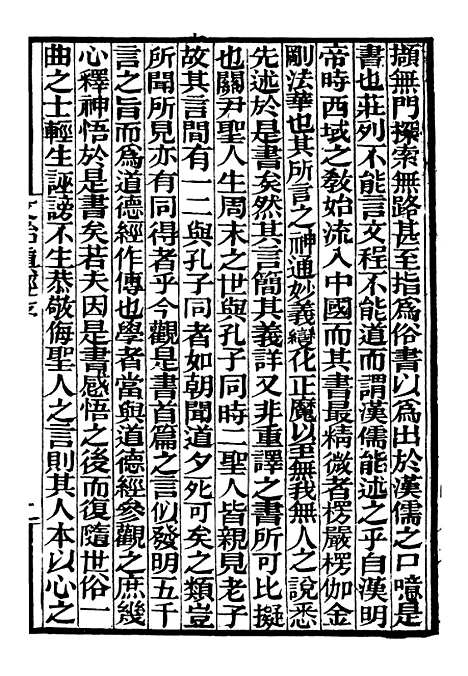 擷無門探索無路甚至指爲俗書以爲出於漢儒之口噫是
書也莊列不能言文程不能道而謂漢儒能述之乎自漢明
帝時西域之教始流入中國而其書最精微者楞嚴楞伽金
剛法華也其所言之神通妙義變化正魔以至無我無人之說悉
先述於是書矣然其言簡其義詳又非重譯之書所可比擬
也關尹聖人生周末之世與孔子同時二聖人皆親見老子
故其言間有一二與孔子同者如朝聞道夕死可矣之類豈
所聞所見亦有同得者乎今觀是書首篇之言似發明五千
言之旨而爲道德經作傳也學者當與道德經參觀之庶幾
心釋神悟於是書矣若夫因是書感悟之後而復隨世俗一
曲之士輕生誣謗不生恭敬侮聖人之言則其人本以心之
文始眞經序
二